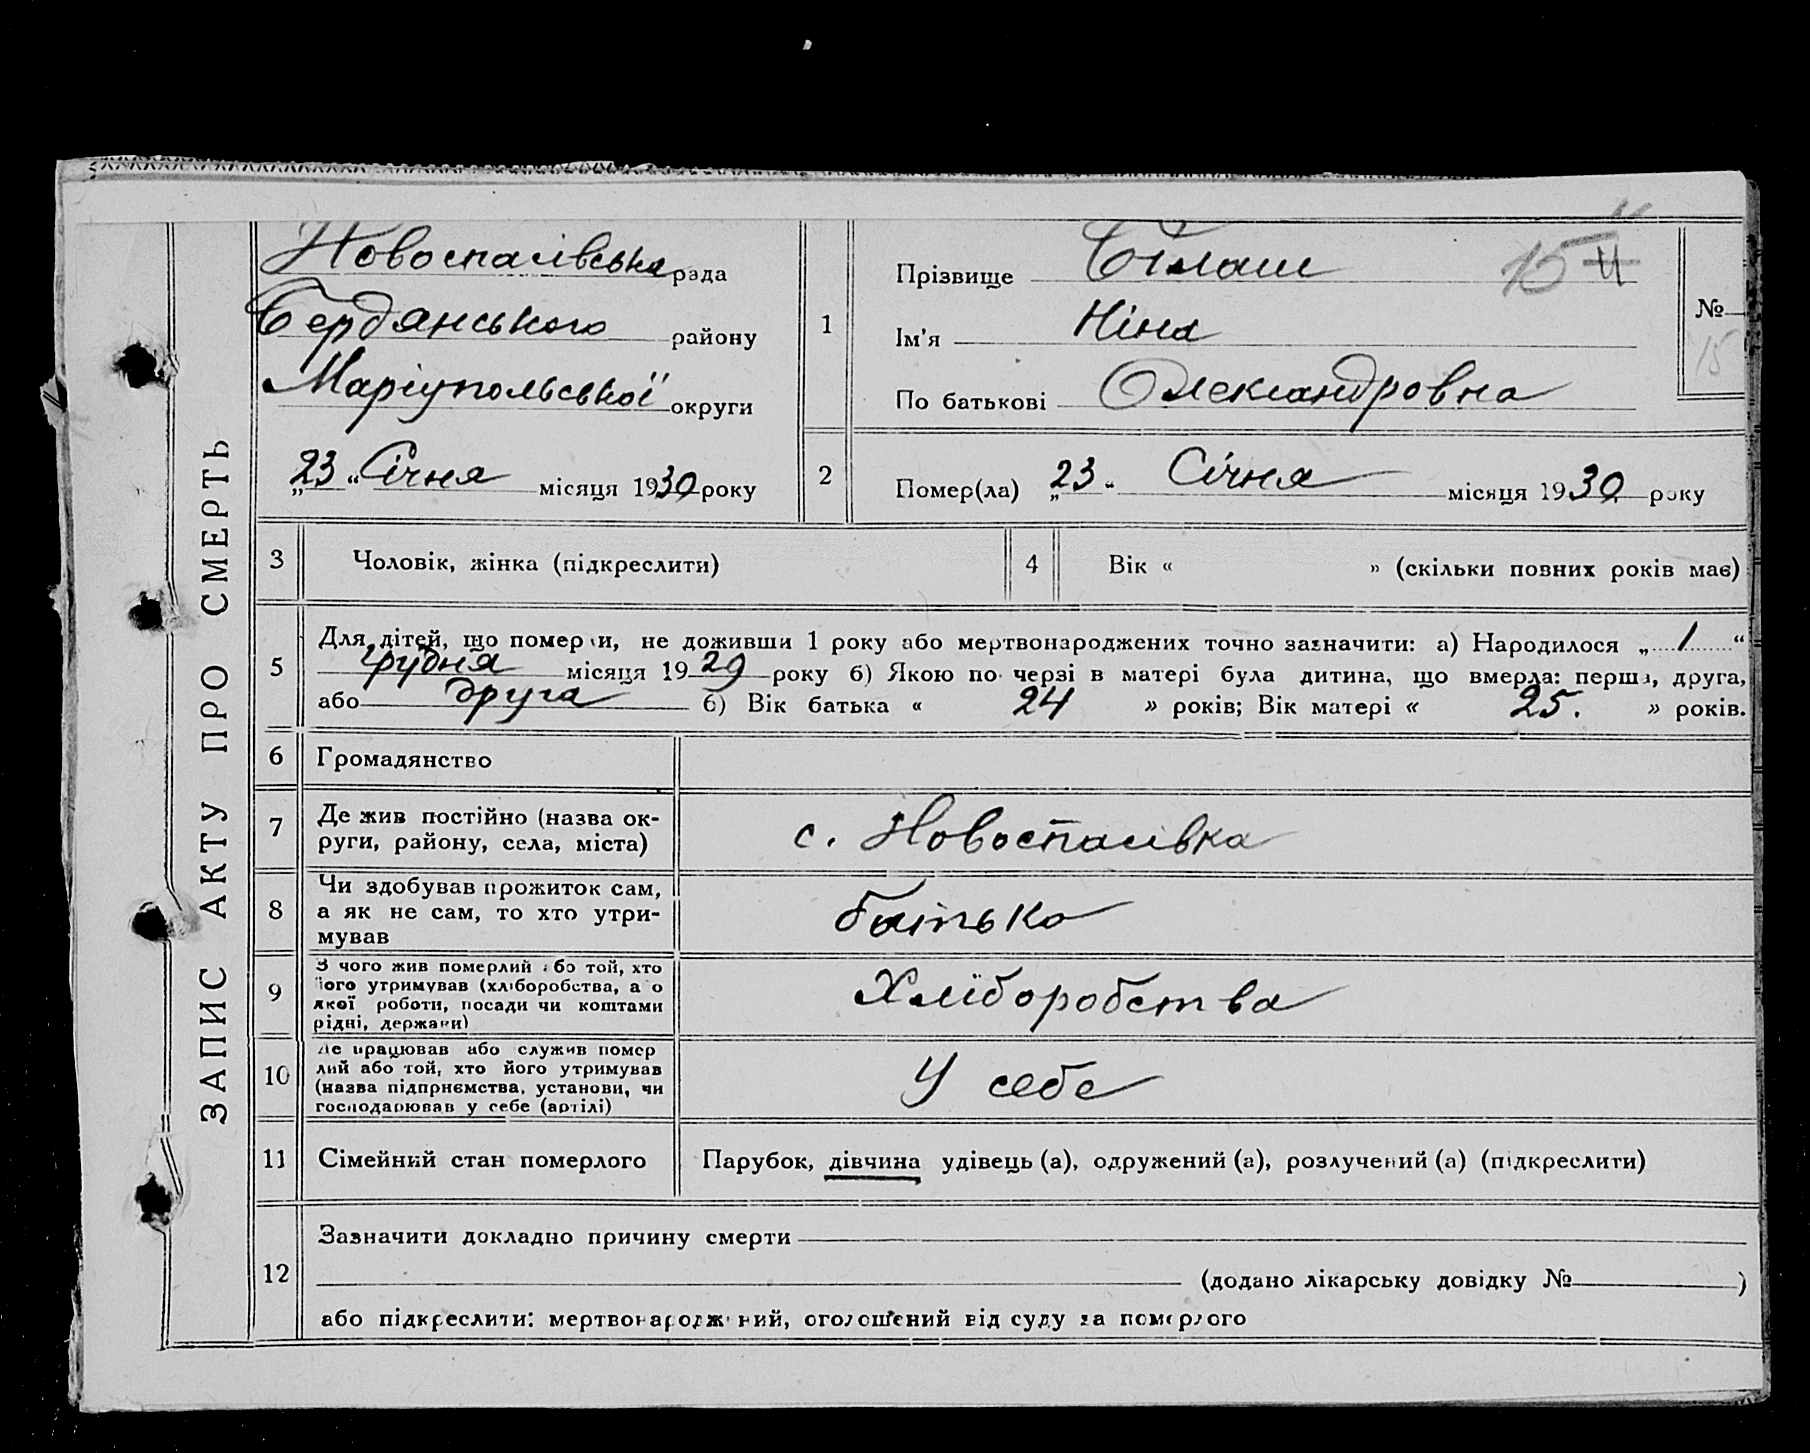 ЗАПИС АКТУ ПРО СМЕРТЬ
Новоспасівська рада
Бердянського району
Маріупольської округи
„23“ Січня місяця 1930 року
1
Прізвище Білаш
Ім'я Ніна
По батькові Олександровна
15 11
№
15
2
Помер(ла) „23“ Січня місяця 1930 року
3 Чоловік, жінка (підкреслити)
4 Вік « » (скільки повних років має)
5 Для дітей, що померли, не доживши 1 року або мертвонароджених точно зазначити: а) Народилося „1“
грудня місяця 1929 року б) Якою по черзі в матері була дитина, що вмерла: перша, друга,
або друга б) Вік батька « 24 » років; Вік матері « 25. » років.
6 Громадянство
7 Де жив постійно (назва ок-
руги, району, села, міста)
с. Новоспасівка
8 Чи здобував прожиток сам,
а як не сам, то хто утри-
мував
батько
9 З чого жив померлий або той, хто
його утримував (хліборобства, а о
якої роботи, посади чи коштами
рідні, держави)
Хліборобства
10 Де працював або служив помер
лий або той, хто його утримував
(назва підприємства, установи, чи
господарював у себе (артілі)
У себе
11 Сімейний стан померлого
Парубок, дівчина удівець (а), одружений (а), розлучений (а) (підкреслити)
12 Зазначити докладно причину смерти
(додано лікарську довідку № )
або підкреслити: мертвонароджений, оголошений від суду за померлого